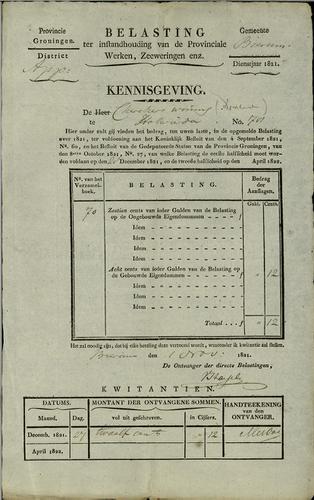 Provincie
Groningen.
District
BELASTING
ter instandhouding van de Provinciale
Werken, Zeeweringen enz.
Gemeente
Dienstjaar 1821.
KENNISGEVING.
De Heer
te No.
Hier onder zult gij vinden het bedrag, ten uwen laste, in de opgemelde Belasting
over 1821, ter voldoening aan het Koninklijk Besluit van den 4 September 1821,
No. 60, en het Besluit van de Gedeputeerde Staten van de Provincie Groningen, van
den October 1821, No. 27, van welke Belasting de eerste halfscheid moet wor-
den voldaan op den December 1821, en de tweede halfscheid op den April 1822.
No. van het
Verzamel-
boek.
BELASTING.
Bedrag
der
Aanslagen.
Guld. Cents.
70 Zestien cents van ieder Gulden van de Belasting
op de Ongebouwde Eigendommen
Idem
Idem
Idem
Idem
Acht cents van ieder Gulden van de Belasting op
de Gebouwde Eigendommen 12
Idem
Idem
Idem
Idem
Totaal 12
Het zal noodig zijn, dat bij elke betaling deze vertoond wordt, waaronder ik kwitantie zal stellen.
den 1 Nov. 1821.
De Ontvanger der directe Belastingen,
KWITANTIEN.
DATUMS. MONTANT DER ONTVANGENE SOMMEN. HANDTEEKENING
van den
ONTVANGER.
Maand. Dag. vol uit geschreven. in Cijfers.
Decemb. 1821. 27 twaalf cents 12
April 1822.